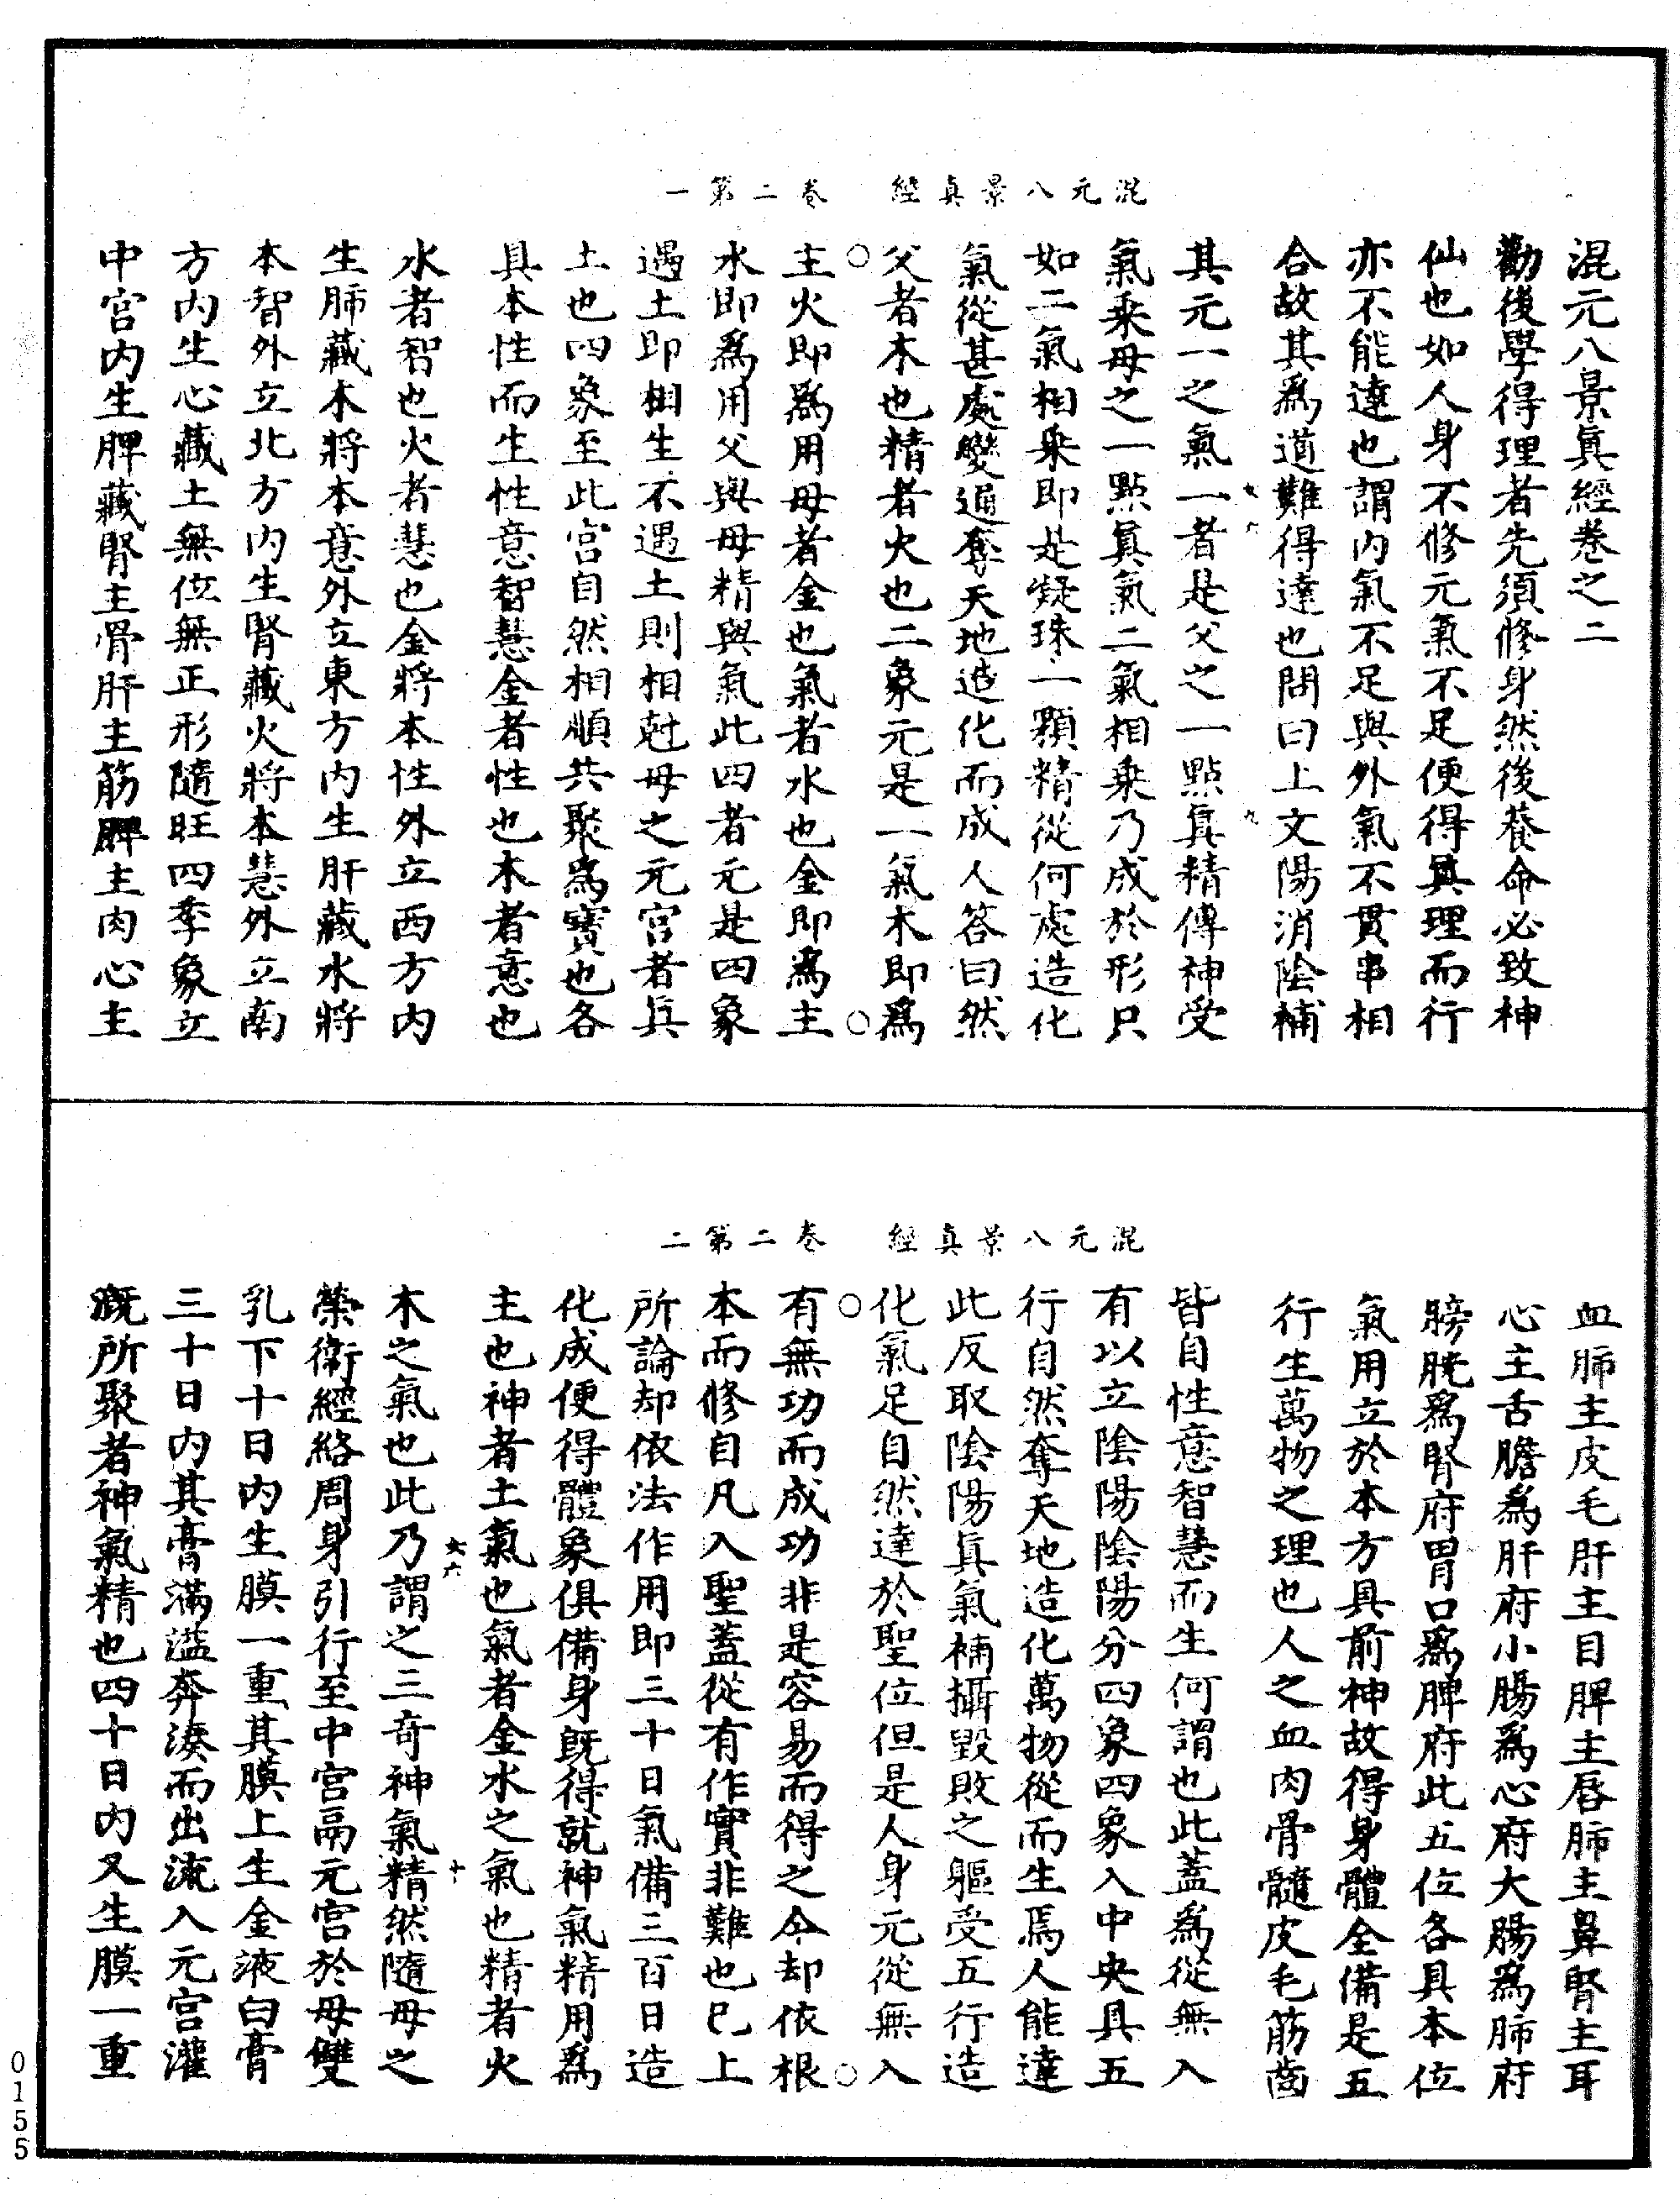 混元八景真經　卷二第一
混元八景眞經卷之二
勸後學得理者先須修身然後養命必致神
仙也如人身不修元氣不足便得眞理而行
亦不能達也謂內氣不足與外氣不貫串相
合故其爲道難得達也問曰上文陽消陰補
其元一之氣一者是父之一點眞精傳神受
氣乘母之一點眞氣二氣相乘乃成於形只
如二氣相乘即是凝珠一顆精從何處造化
氣從甚處變通奪天地造化而成人荅曰然
父者木也精者火也二象元是一氣木即爲
主火即爲用母者金也氣者水也金即爲主
水即爲用父與母精與氣此四者元是四象
遇土即相生不遇土則相尅母之元宮者眞
土也四象至此宮自然相順共聚爲寶也各
具本性而生性意智慧金者性也木者意也
水者智也火者慧也金將本性外立西方內
生肺藏木將本意外立東方內生肝藏水將
本智外立北方內生腎藏火將本慧外立南
方內生心藏土無位無正形隨旺四季象立
中宮內生脾藏腎主骨肝主筋脾主肉心主
混元八景真經　卷二第二
血肺主皮毛肝主目脾主唇肺主鼻腎主耳
心主舌膽爲肝府小腸爲心府大腸爲肺府
膀胱爲腎府胃口爲脾府此五位各具本位
氣用立於本方具前神故得身體全備是五
行生萬物之理也人之血肉骨髓皮毛筋齒
皆自性意智慧而生何謂也此蓋爲從無入
有以立陰陽陰陽分四象四象入中央具五
行自然奪天地造化萬物從而生焉人能達
此反取陰陽眞氣補攝毀敗之軀受五行造
化氣足自然達於聖位但是人身元從無入
有無功而成功非是容易而得之今却依根
本而修自凡入聖蓋從有作實非難也已上
所論却依法作用即三十日氣備三百日造
化成便得體象俱備身旣得就神氣精用爲
主也神者土氣也氣者金水之氣也精者火
木之氣也此乃謂之三奇神氣精然隨母之
榮衛經絡周身引行至中宮鬲元宮於母雙
乳下十日內生膜一重其膜上生金液白膏
三十日內其膏滿溢奔湊而出流入元宮灌
溉所聚者神氣精也四十日內又生膜一重
0155